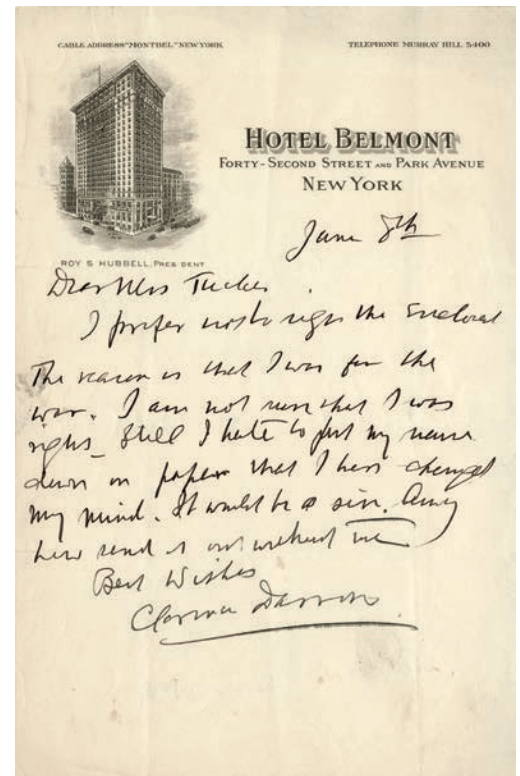 CABLE ADDRESS "MONTBEL" NEW YORK
TELEPHONE MURRAY HILL 5400
HOTEL BELMONT
FORTY-SECOND STREET AND PARK AVENUE
NEW YORK
ROY S HUBBELL, PRESIDENT
June 8th
Dear Mrs Tucker
I prefer not to sign the enclosed
The reason is that I was for the
war. I am not sure that I was
right. Still I hate to put my name
down on paper that I have changed
my mind. It would be a sin. Any
how send it out without me
Best Wishes
Clarence Darrow